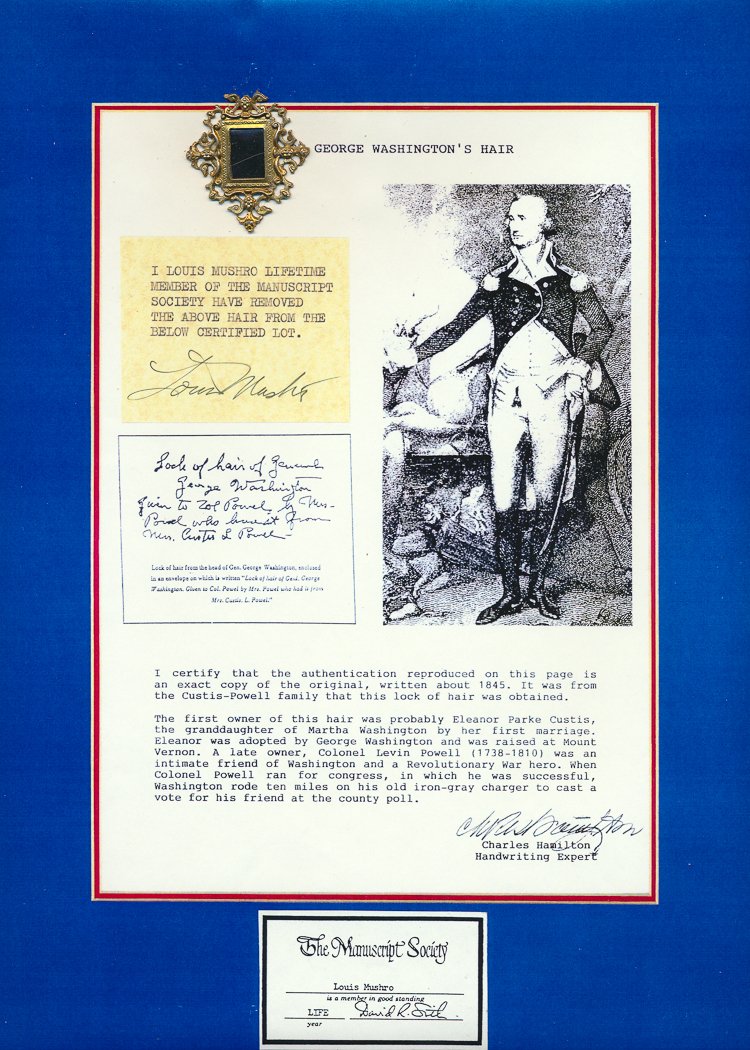 GEORGE WASHINGTON'S HAIR
I LOUIS MUSHRO LIFETIME
MEMBER OF THE MANUSCRIPT
SOCIETY HAVE REMOVED
THE ABOVE HAIR FROM THE
BELOW CERTIFIED LOT.
Louis Mushro
Lock of hair of General
George Washington
Given to Col Powel by Mrs.
Powel who had it from
Mrs. Custis L Powel
Lock of hair from the head of Gen. George Washington, enclosed
in an envelope on which is written "Lock of hair of Genl. George
Washington. Given to Col. Powel by Mrs. Powel who had it from
Mrs. Custis. L. Powel."
I certify that the authentication reproduced on this page is
an exact copy of the original, written about 1845. It was from
the Custis-Powell family that this lock of hair was obtained.
The first owner of this hair was probably Eleanor Parke Custis,
the granddaughter of Martha Washington by her first marriage.
Eleanor was adopted by George Washington and was raised at Mount
Vernon. A late owner, Colonel Levin Powell (1738-1810) was an
intimate friend of Washington and a Revolutionary War hero. When
Colonel Powell ran for congress, in which he was successful,
Washington rode ten miles on his old iron-gray charger to cast a
vote for his friend at the county poll.
Charles Hamilton
Charles Hamilton,
Handwriting Expert
The Manuscript Society
Louis Mushro
is a member in good standing
LIFE David R. Smith
year